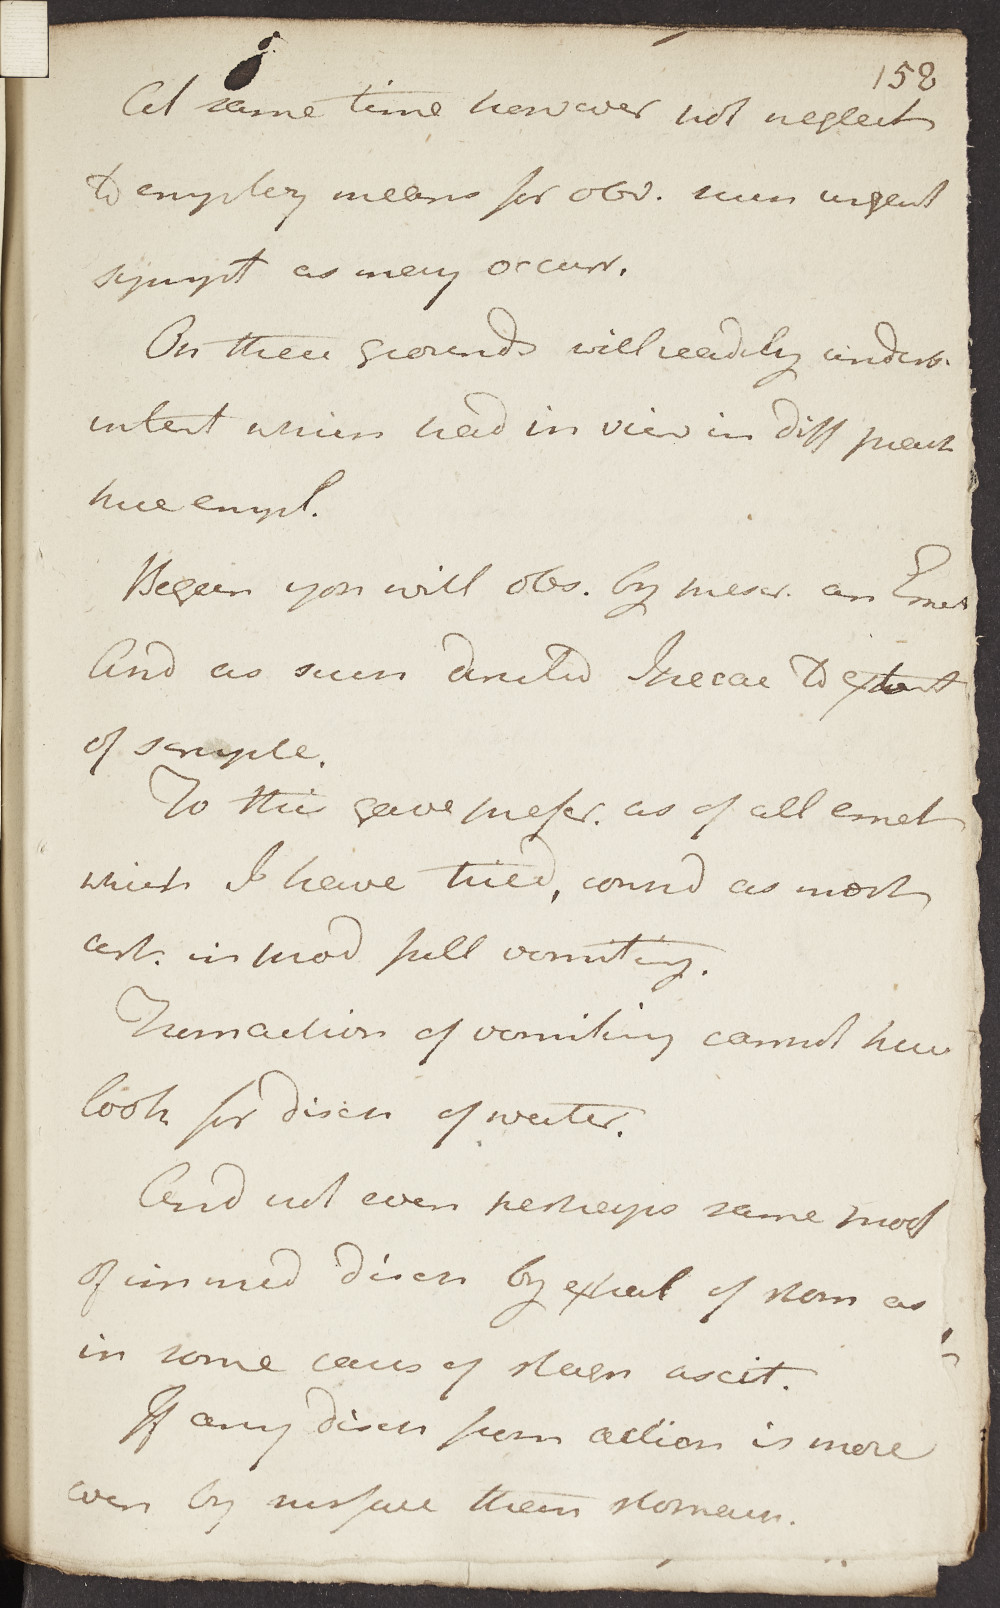 158
At same time however not neglect
to employ means for obv. such urgent
sympt as may occurr.
On these grounds will readily underst.
intent which had in view in diff pract
here empl.
Began you will obs. by prescr. an Emet
And as such directed Ipecac to extent
of scruple.
To this gave prefer. as of all emet
which I have tried, consid as most
cert. in prod full vomiting.
From action of vomiting cannot here
look for disch of water.
And not even perhaps same mod
of immed disch by expul of stom as
in some cases of stagn ascit.
If any disch from action is more
even by surface than stomach.